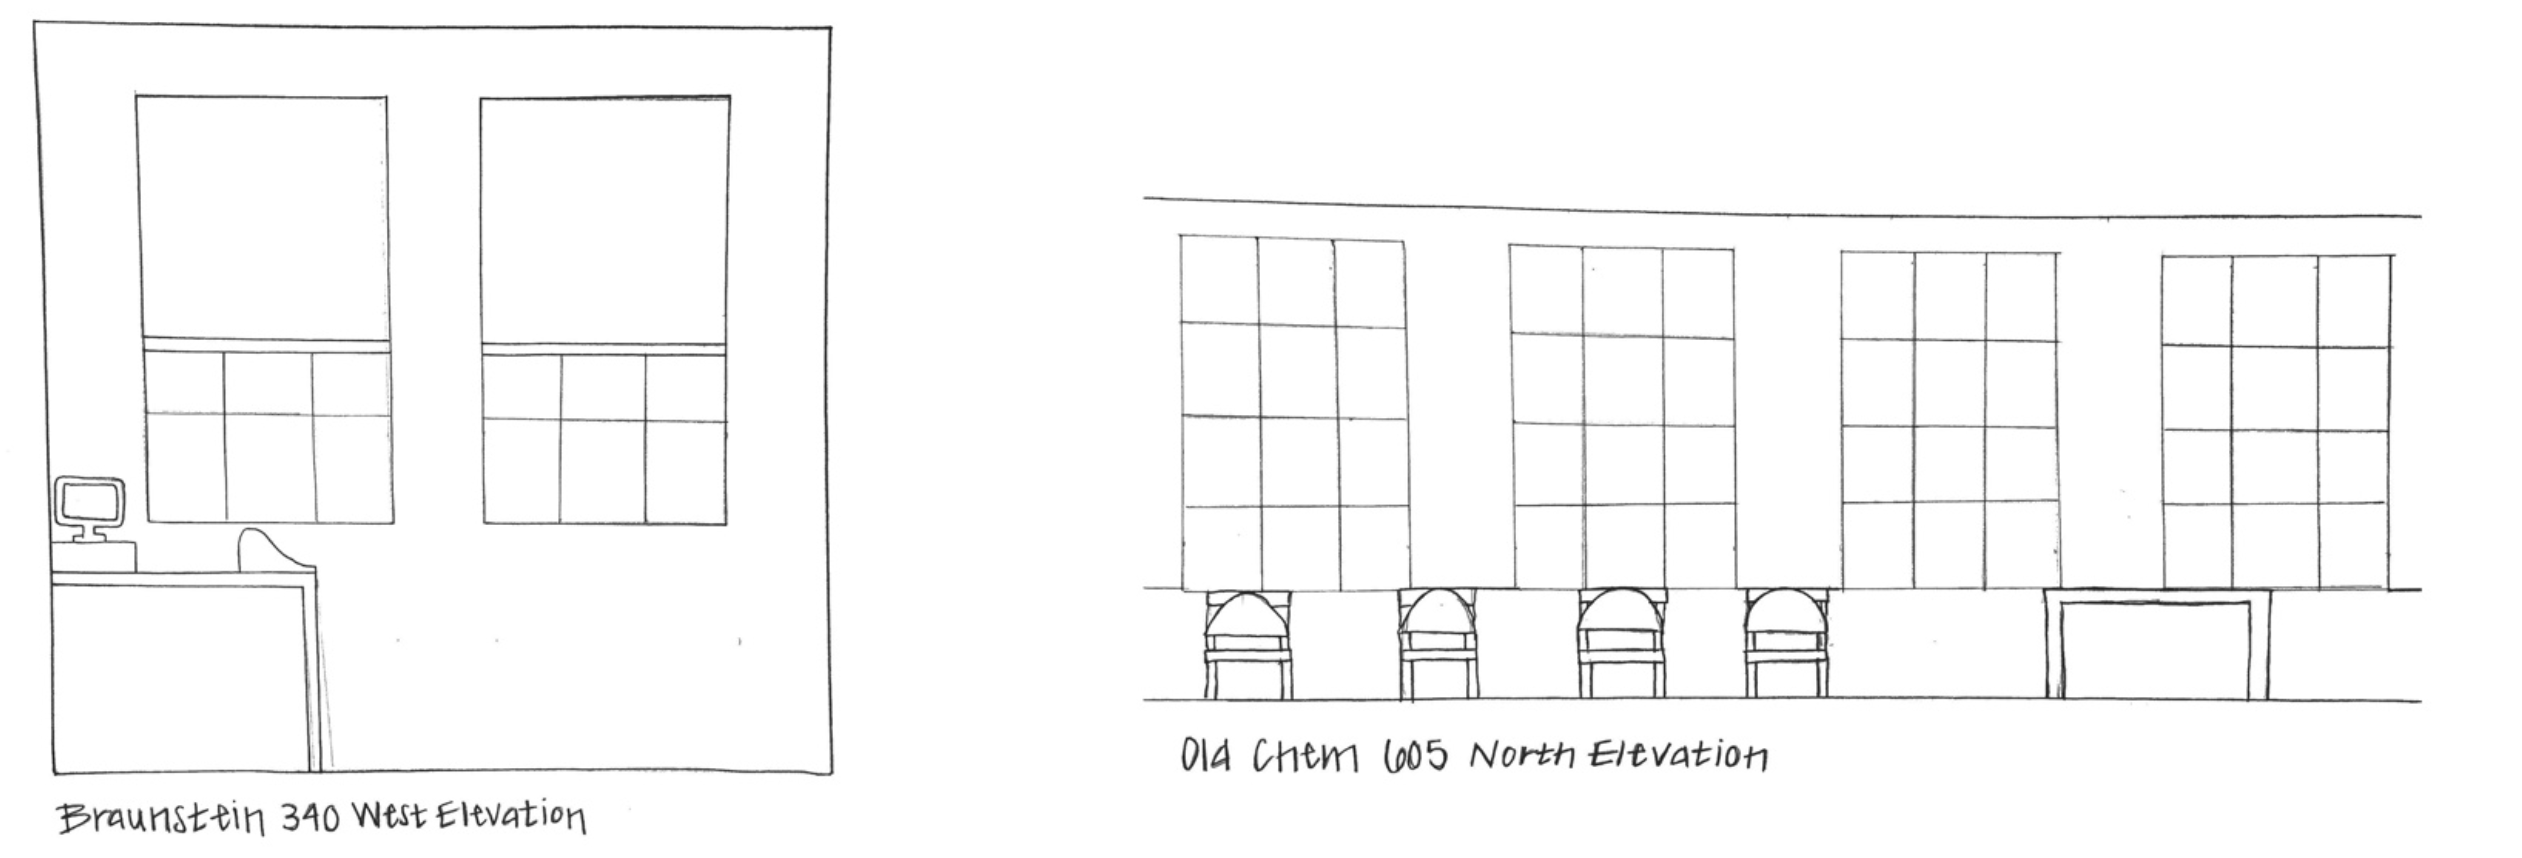 Braunstein 340 West Elevation
Old Chem 605 North Elevation